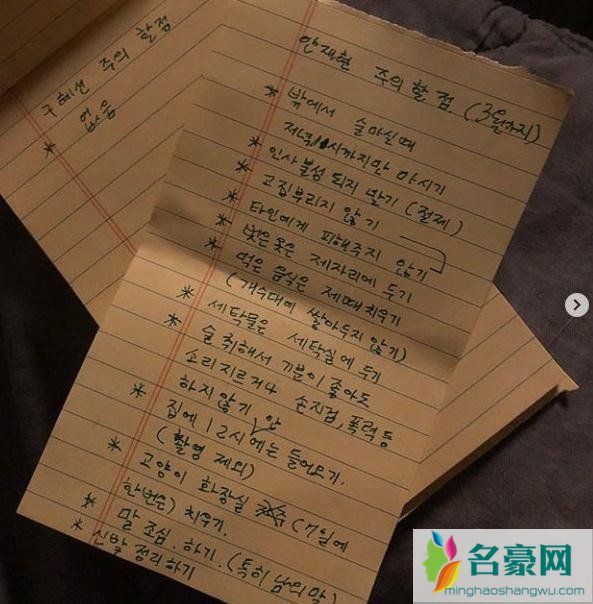 구혜선 주의 할점
* 없음
안재현 주의 할 점. (3월까지)
* 밖에서 술마실때
저녁 11시까지만 마시기
* 인사불성 되지 말기 (절제)
* 고집부리지 않기
* 타인에게 피해주지 않기
* 벗은 옷은 제자리에 두기
* 먹은 음식은 제때 치우기
(개수대에 쌓아두지 않기)
* 세탁물은 세탁실에 두기
* 술 취해서 기분이 좋아도
소리지르거나 손지검, 폭력 등
하지 않기
* 집에 12시 안에는 들어오기.
(촬영 제외)
* 고양이 화장실 (7일에
한번은) 치우기.
* 말 조심. 하기. (특히 남의 말)
* 신발 정리하기
名豪网
minghaoshangwu.com